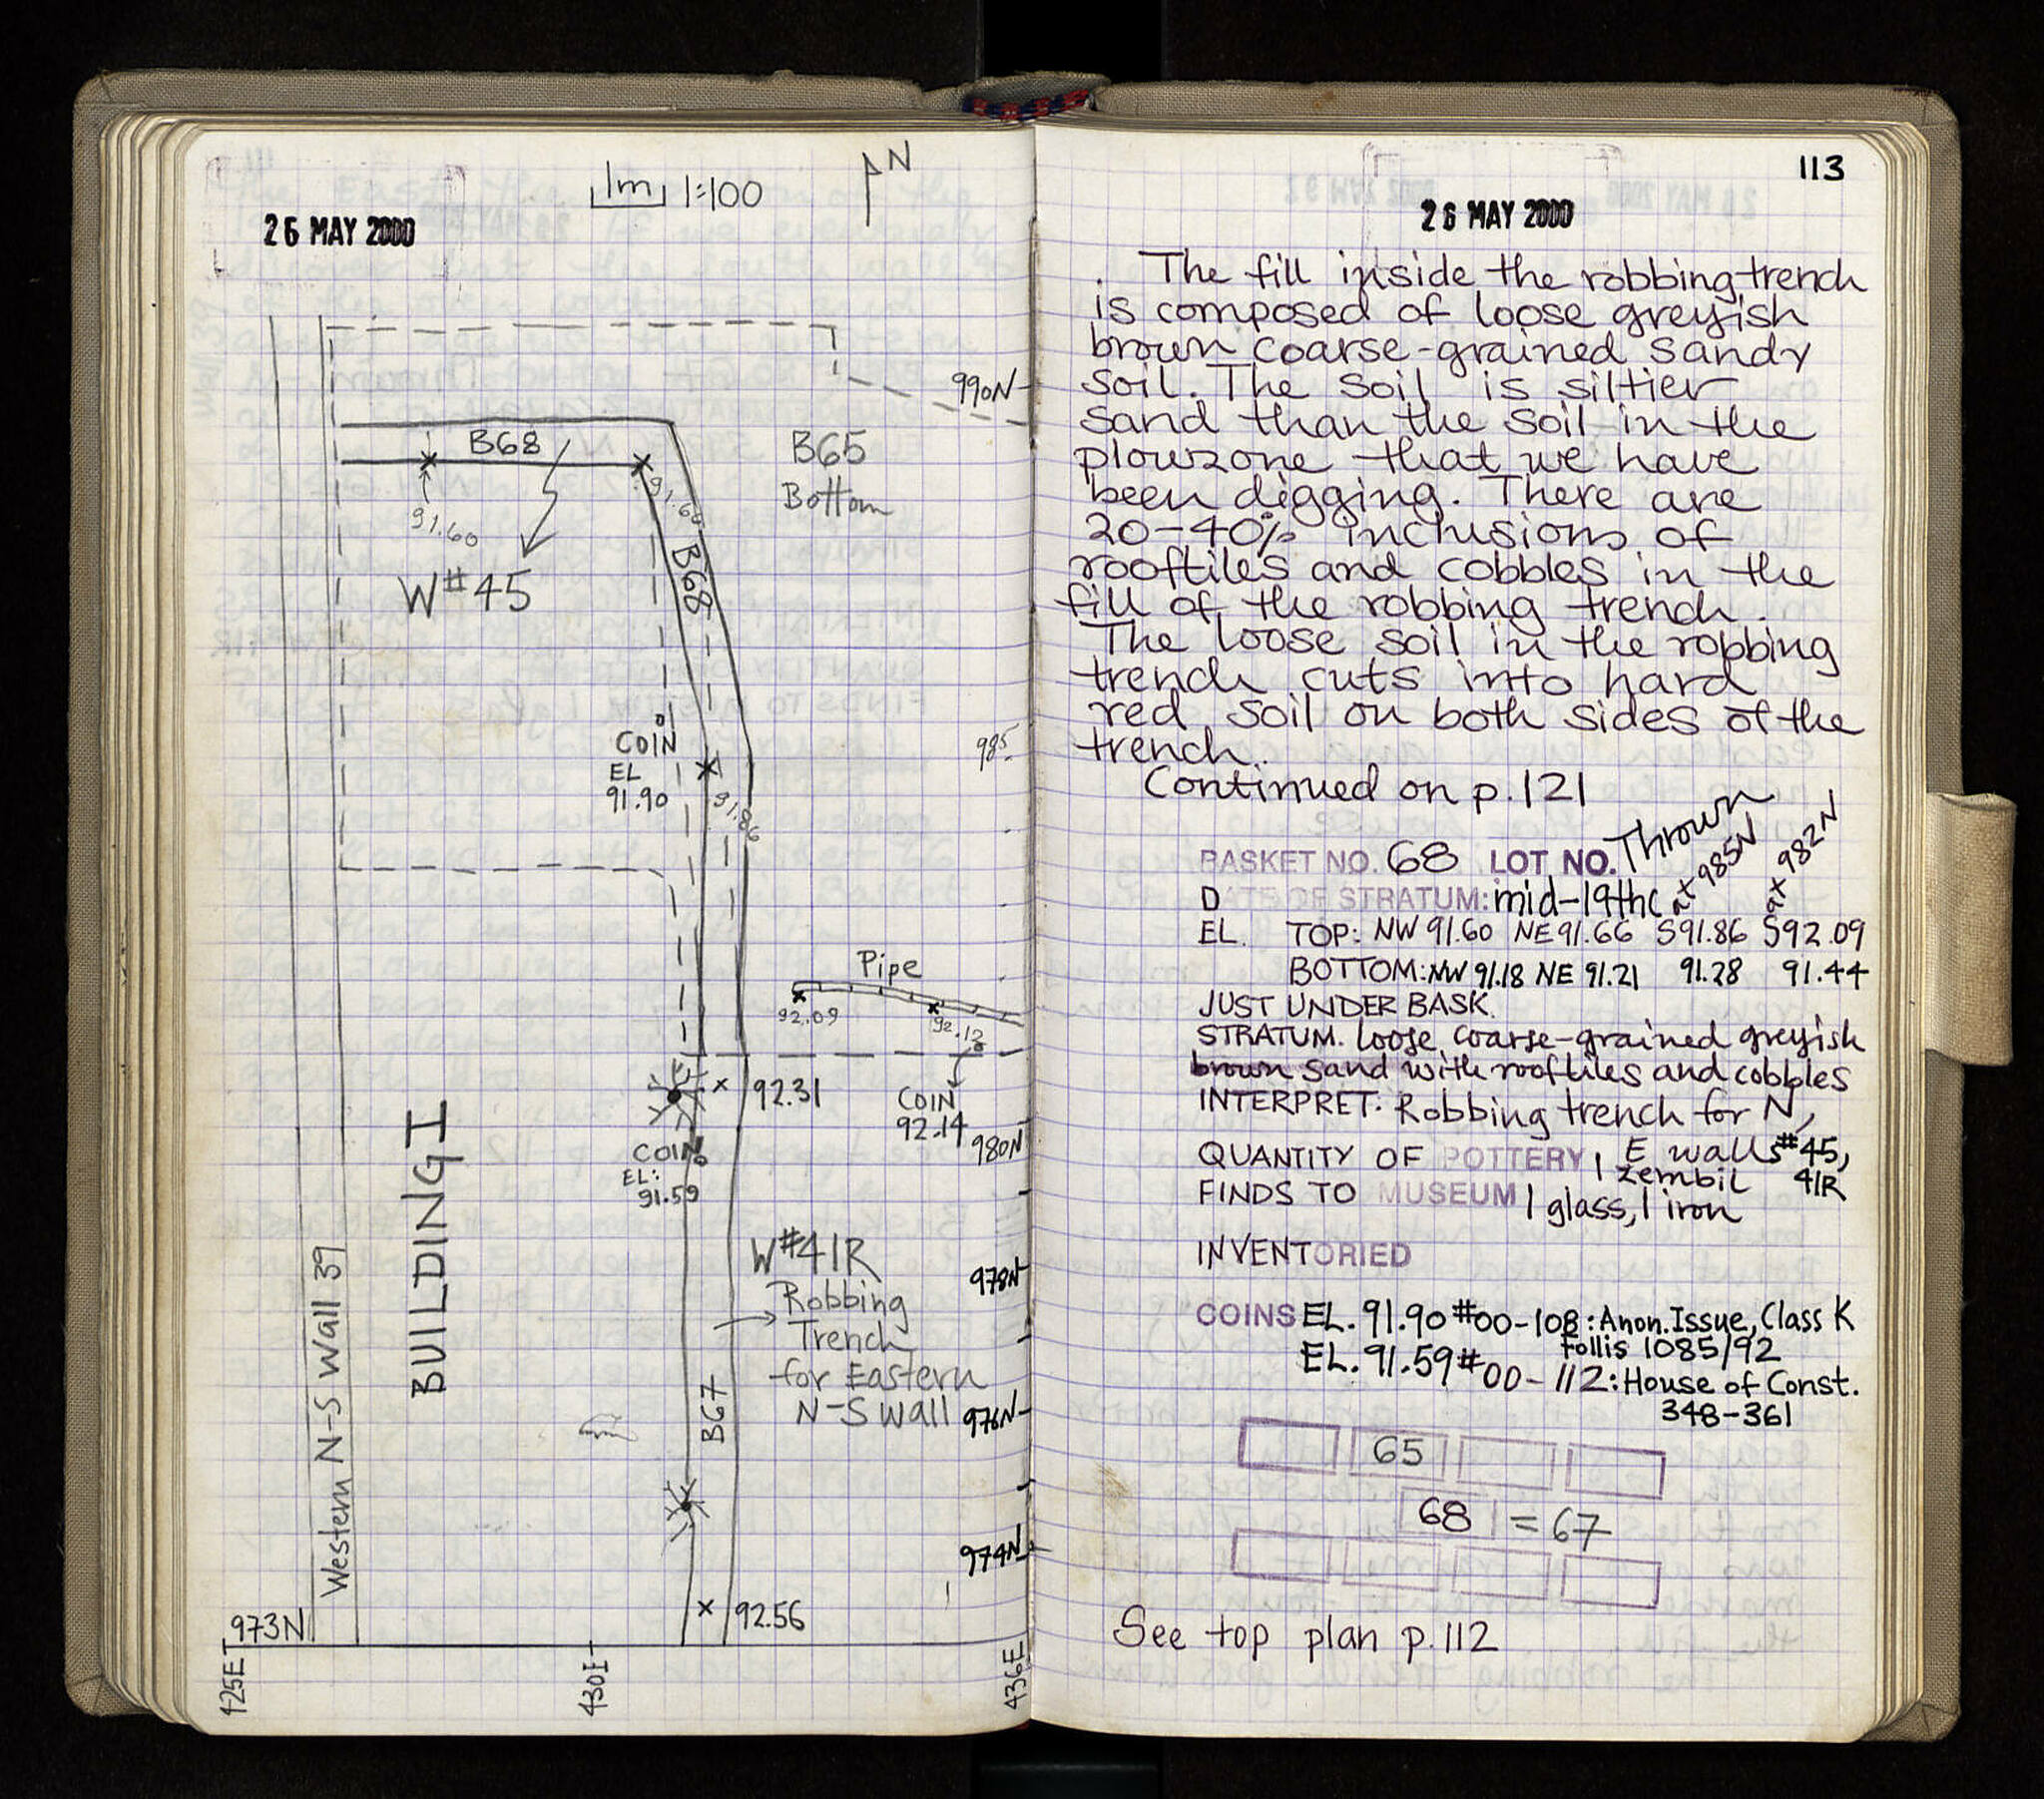 1m 1:100
N
26 MAY 2000
990N
B68
B65
Bottom
91.60
91.66
W#45
B68
COIN
EL
91.90
985
91.86
Pipe
92.09
92.12
92.31
COIN
92.14
980N
COIN
EL:
91.59
BUILDING I
W#41R
Robbing
Trench
for Eastern
N-S wall
978N
976N
B67
Western N-S Wall 39
974N
973N
92.56
425E
430E
436E
113
26 MAY 2000
The fill inside the robbing trench
is composed of loose greyish
brown coarse-grained sandy
soil. The soil is siltier
sand than the soil in the
plowzone that we have
been digging. There are
20-40% inclusions of
rooftiles and cobbles in the
fill of the robbing trench.
The loose soil in the robbing
trench cuts into hard
red soil on both sides of the
trench.
Continued on p.121
BASKET NO. 68 LOT NO. Thrown
DATE OF STRATUM: mid-19thc
at x 985N
at x 982N
EL. TOP: NW 91.60 NE 91.66 S91.86 S92.09
BOTTOM: NW 91.18 NE 91.21 91.28 91.44
JUST UNDER BASK.
STRATUM. loose coarse-grained greyish
brown sand with rooftiles and cobbles
INTERPRET. Robbing trench for N,
E walls #45,
41R
QUANTITY OF POTTERY 1 zembil
FINDS TO MUSEUM 1 glass, 1 iron
INVENTORIED
COINS EL. 91.90 #00-108: Anon. Issue, Class K
follis 1085/92
EL. 91.59 #00-112: House of Const.
348-361
65
68 = 67
See top plan p.112